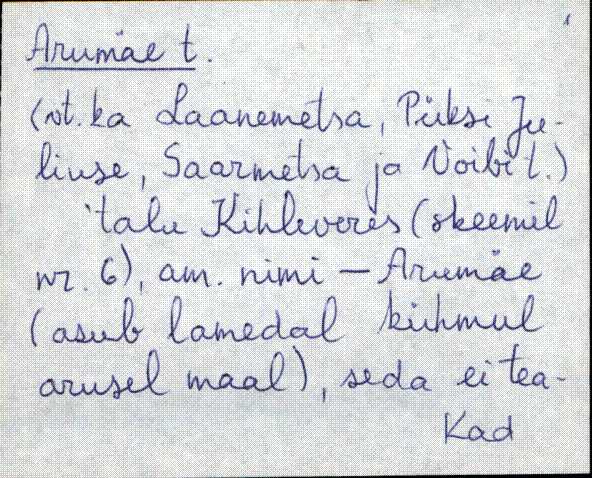 1
Arumäe t.
(vt. ka Laanemetsa, Püksi Ju-
liuse, Saarmetsa ja Voibi t.)
'talu Kihleveres (skeemil
nr. 6), am. nimi – Arumäe
(asub lamedal kühmul
arusel maal), seda ei tea-
Kad